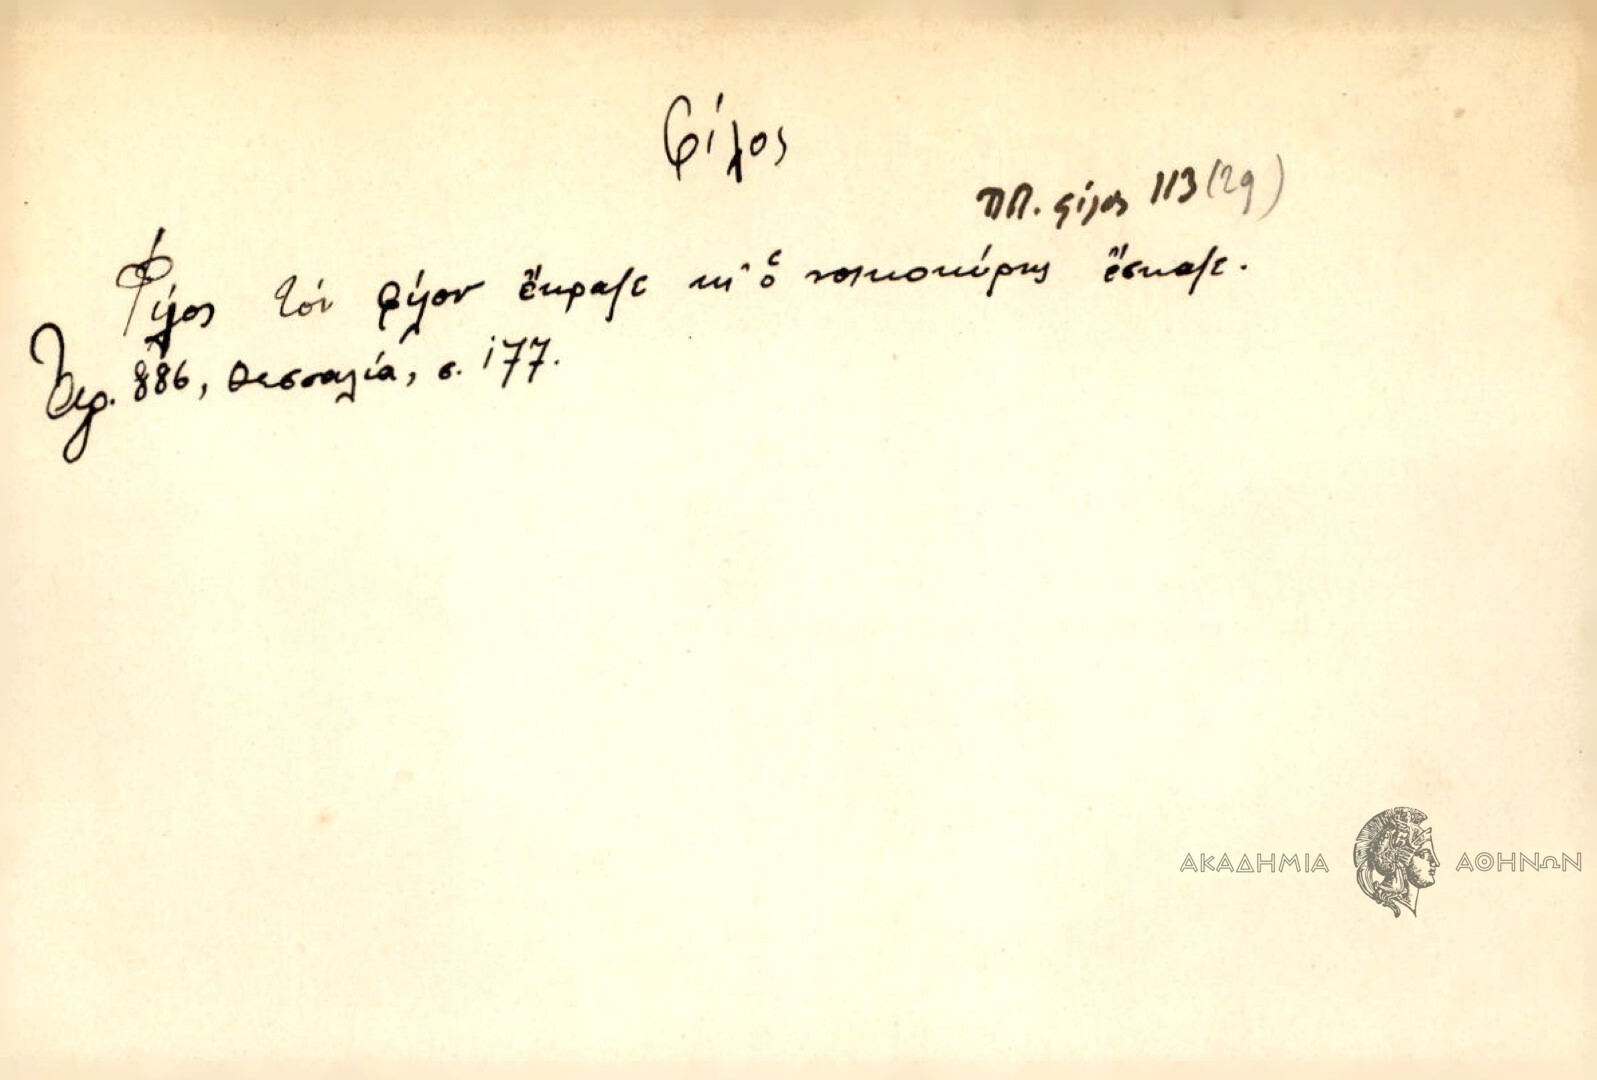 φίλος
ΠΠ. φίλος 113 (2g)
Φίλος τὸν φίλον ἔκραξε κι' ὁ νοικοκύρης ἔσκαξε.
Χειρ. 886, Θεσσαλία, σ. 177.
ΑΚΑΔΗΜΙΑ ΑΘΗΝΩΝ